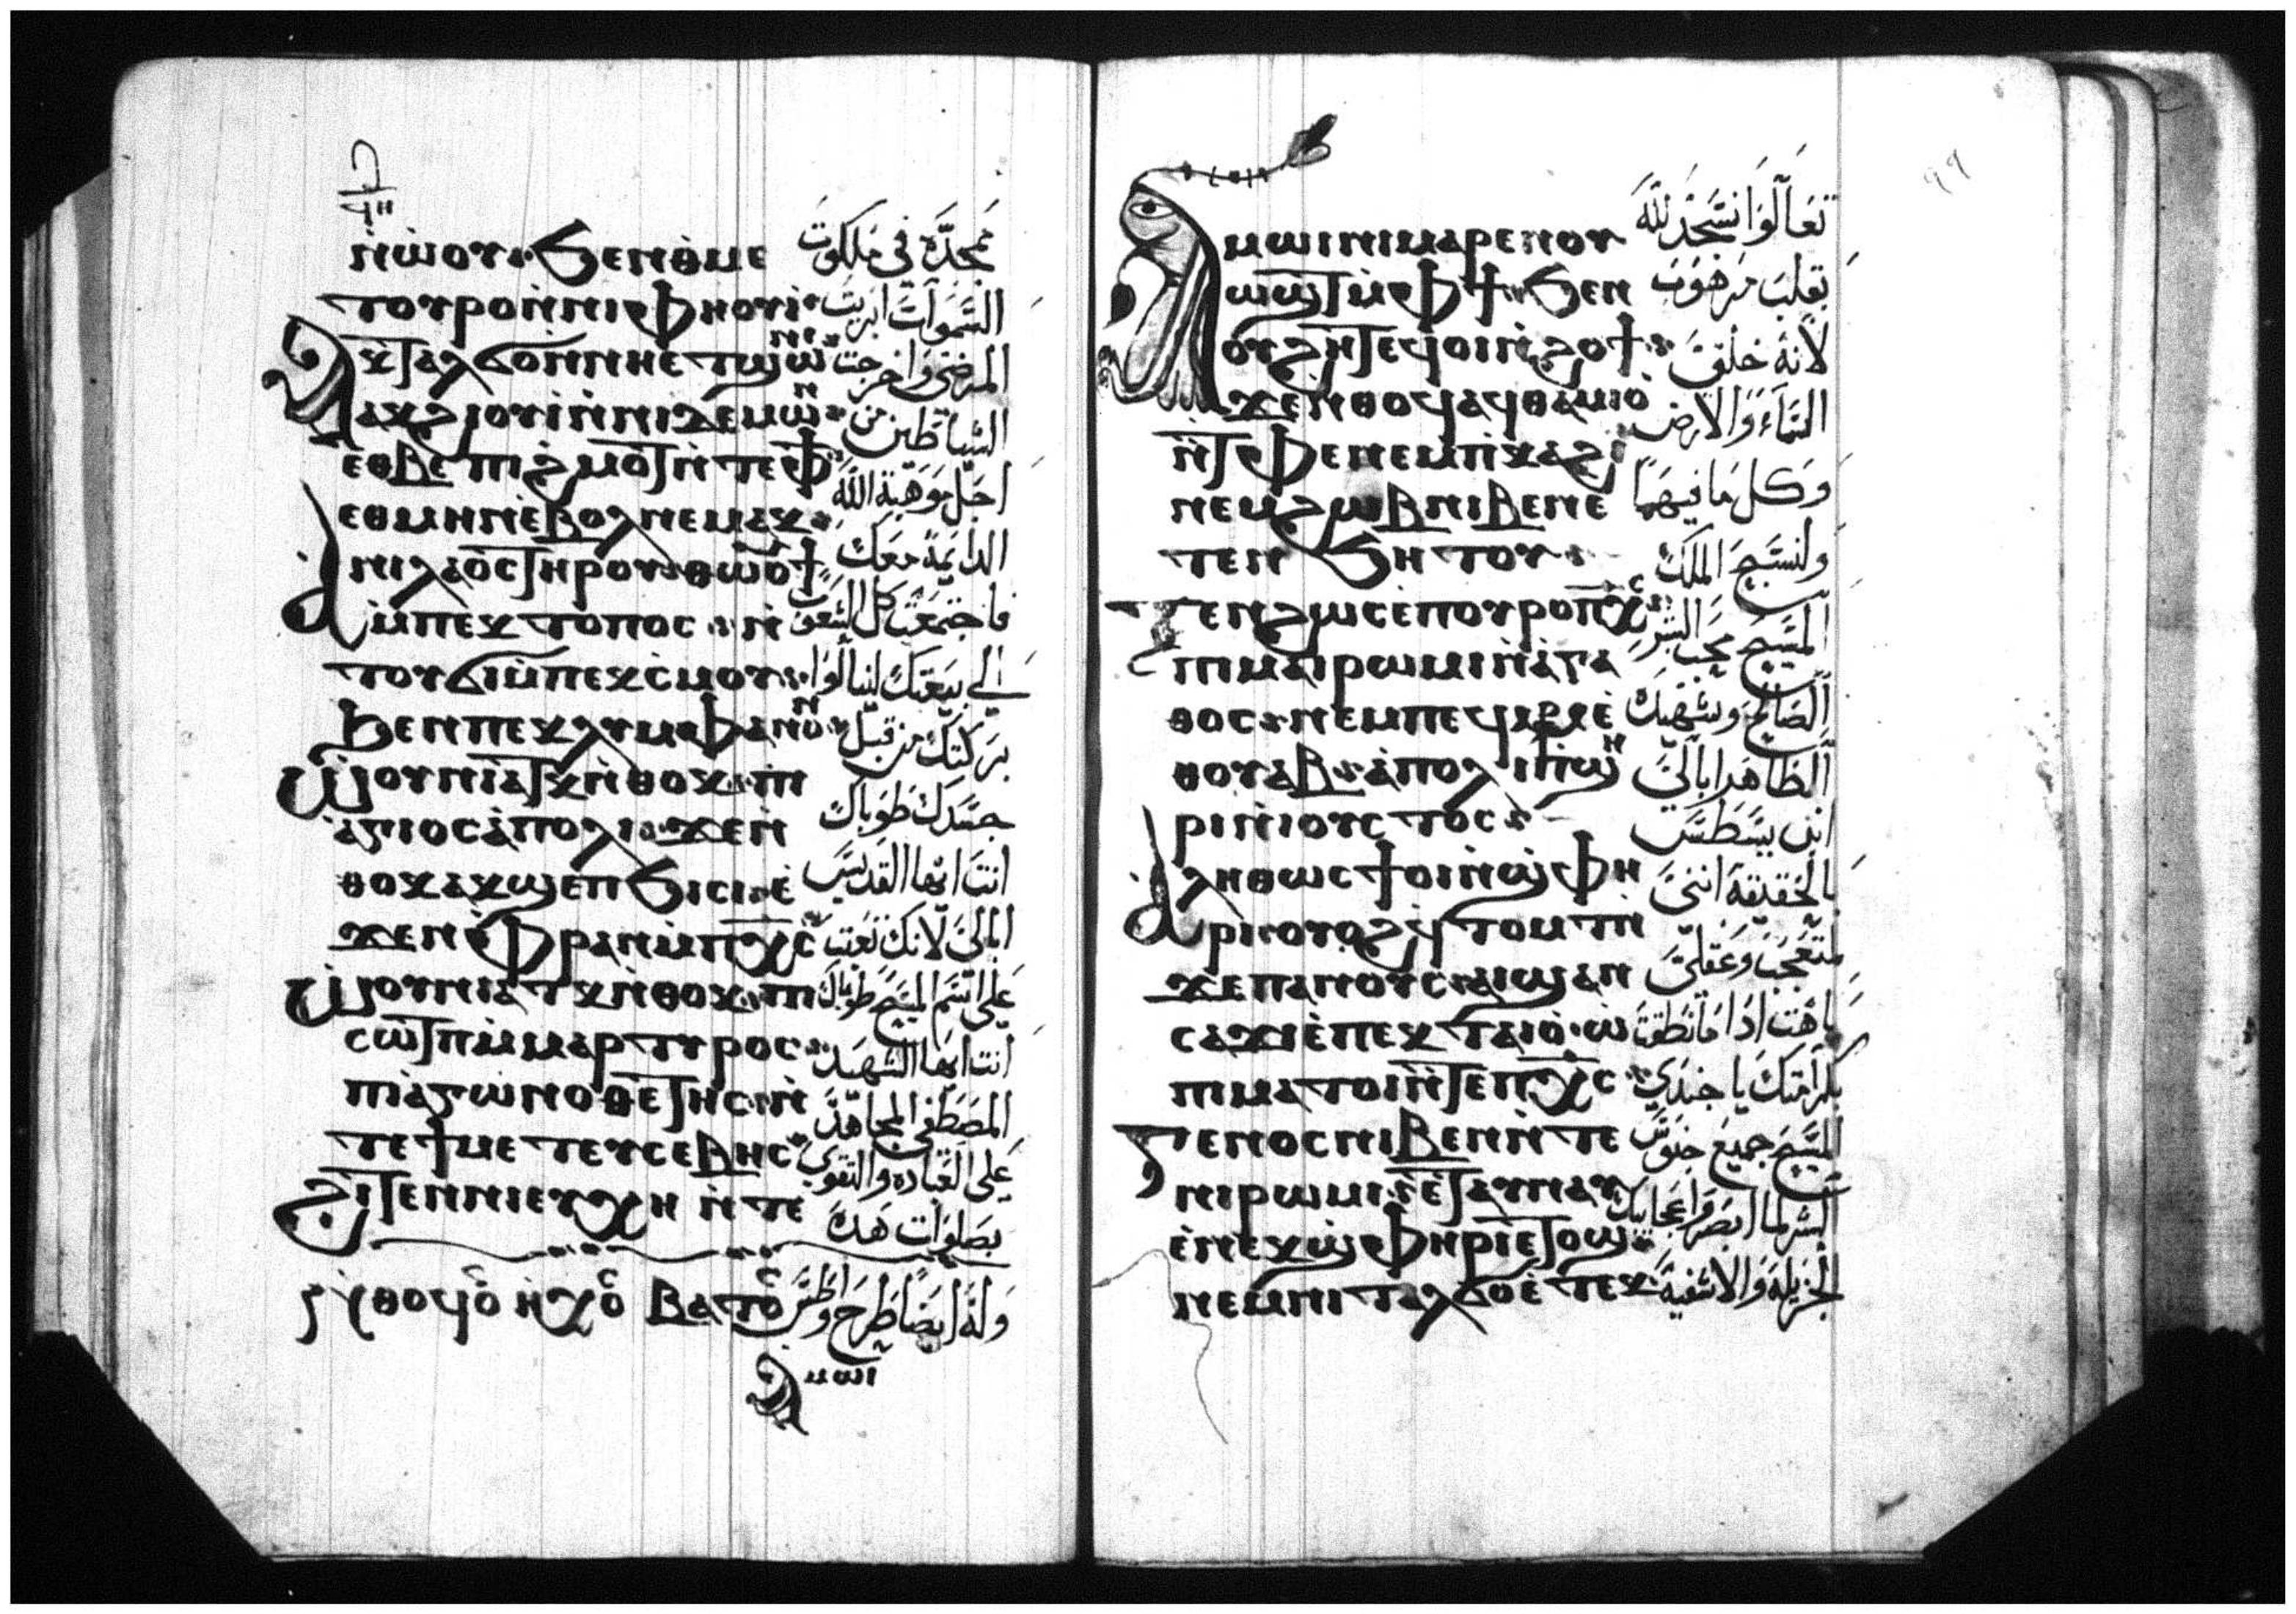 ⲛ̀ⲱⲟⲩ ϧⲉⲛⲑⲙⲉ
ⲧⲟⲩⲣⲟⲛ̀ⲛⲓⲫⲏⲟⲩⲓ̀
ⲁⲕⲧⲁⲗϭⲟⲛ̀ⲛⲏⲉⲧϣⲱⲛⲓ
ⲁⲕϩⲓⲟⲩⲓ̀ⲛ̀ⲛⲓⲇⲉⲙⲱⲛ
ⲉⲑⲃⲉ ⲡⲓϩⲙⲟⲧⲛ̀ⲧⲉⲫϯ
ⲉⲑⲙⲏⲛⲉ̀ⲃⲟⲗⲛⲉⲙⲁⲕ
ⲛⲓⲗⲁⲟⲥⲧⲏⲣⲟⲩⲑⲱⲟⲩϯ
ⲙ̀ⲡⲉⲕⲧⲟⲡⲟⲥ ⲛ̀
ⲧⲟⲩϭⲓⲙ̀ⲡⲉⲕⲥ̀ⲙⲟⲩ
ϧⲉⲛⲡⲉⲕⲗⲩⲙⲯⲁⲛⲟⲛ
ⲱⲟⲩⲛⲓⲁⲧⲕⲛ̀ⲑⲟⲕ ⲡⲓ
ⲁ̀ⲅⲓⲟⲥⲁ̀ⲡⲟⲗⲓ ϫⲉⲛ̀
ⲑⲟⲕⲁⲕϣⲉⲡ ϧⲓⲥⲓ ⲉ̀
ϫⲉⲛⲫ̀ⲣⲁⲛⲙ̀ⲡⲭ̅ⲥ̅
ⲱⲟⲩⲛⲓⲁⲧⲕⲛ̀ⲑⲟⲕ ⲡⲓ
ⲥⲱⲧⲡⲙ̀ⲙⲁⲣⲧⲩⲣⲟⲥ
ⲡⲓⲁ̀ⲅⲱⲛⲟⲑⲉⲧⲏⲥ ⲛ̀
ⲧⲉϯⲙⲉⲧⲉⲩⲥⲉⲃⲏⲥ
ϩⲓⲧⲉⲛⲛⲓⲉⲩⲭⲏ ⲛ̀ⲧⲉ
ⲃⲁⲧⲟⲥ
ⲁⲙⲱⲓ
ممجده في ملكوت
السموات ابريت
المرضى واخرجت
الشياطين من
اجل موهبة الله
الدايمة معك
فاجتمعت كل الشعوب
الي بيعتك لينالوا
بركتك من قبل
جسدك طوباك
انت ايها القديس
ابالي لانك تعبت
على اسم المسيح طوباك
انت ايها الشهيد
المصطفى المجاهد
على العباده والتقوى
بصلوات هذه
وله ايضا طرح واطس
ⲁⲙⲱⲓⲛⲓⲙⲁⲣⲉⲛⲟⲩ
ⲱϣⲧⲙ̀ⲫϯ ϧⲉⲛ
ⲟⲩϩⲏⲧⲉϥⲟⲓⲛ̀ϩⲟϯ
ϫⲉⲛ̀ⲑⲟϥⲁϥⲑⲁⲙⲓⲟ̀
ⲛ̀ⲧⲫⲉⲛⲉⲙⲡ̀ⲕⲁϩⲓ
ⲛⲉⲙϩⲱⲃⲛⲓⲃⲉⲛⲉ
ⲧⲉⲛ ϧⲏⲧⲟⲩ
ⲧⲉⲛϩⲱⲥⲉ̀ⲡⲟⲩⲣⲟⲡⲭ̅ⲥ̅
ⲡⲓⲙⲁⲓⲣⲱⲙⲓⲛ̀ⲁ̀ⲅⲁ
ⲑⲟⲥ ⲛⲉⲙⲡⲉϥⲙⲣ̅ⲉ̀
ⲑⲟⲩⲁⲃ ⲁ̀ⲡⲟⲗⲓⲡϣⲏ
ⲣⲓⲛ̀ⲓⲟⲩⲥⲧⲟⲥ
ⲁⲗⲏⲑⲱⲥϯⲟⲓⲛ̀ϣⲫⲏ
ⲣⲓ ⲟⲩⲟϩϥ̀ⲧⲟⲙⲧ ⲛ̀
ϫⲉⲡⲁⲛⲟⲩⲥⲁⲓϣⲁⲛ
ⲥⲁϫⲓⲉ̀ⲡⲉⲕⲧⲁⲓⲟ̀ ⲱ̀
ⲡⲓⲙⲁⲧⲟⲓⲛ̀ⲧⲉⲡⲭ̅ⲥ̅
ⲅⲉⲛⲟⲥⲛⲓⲃⲉⲛⲛ̀ⲧⲉ
ⲛⲓⲣⲱⲙⲓ ⲉⲧⲁⲩⲛⲁⲩ
ⲉ̀ⲛⲉⲕϣⲫⲏⲣⲓⲉⲧⲟϣ
ⲛⲉⲙⲛⲓⲧⲁⲗϭⲟⲉ̀ⲧⲉⲕ
٩٩
تعالوا نسجد لله
بقلب مرهوب
لانه خلق
السماء والارض
وكل ما فيهما
ولنسبح الملك
المسيح محب البشر
الصالح وشهيده
الطاهر ابالي
ابن يسطس
بالحقيقة انني
متعجب وعقلي
باهت اذا ما نطقت
بكرامتك يا جندي
المسيح جميع جنوس
البشر لما ابصروا عجايبك
الجزيلة والاشفية